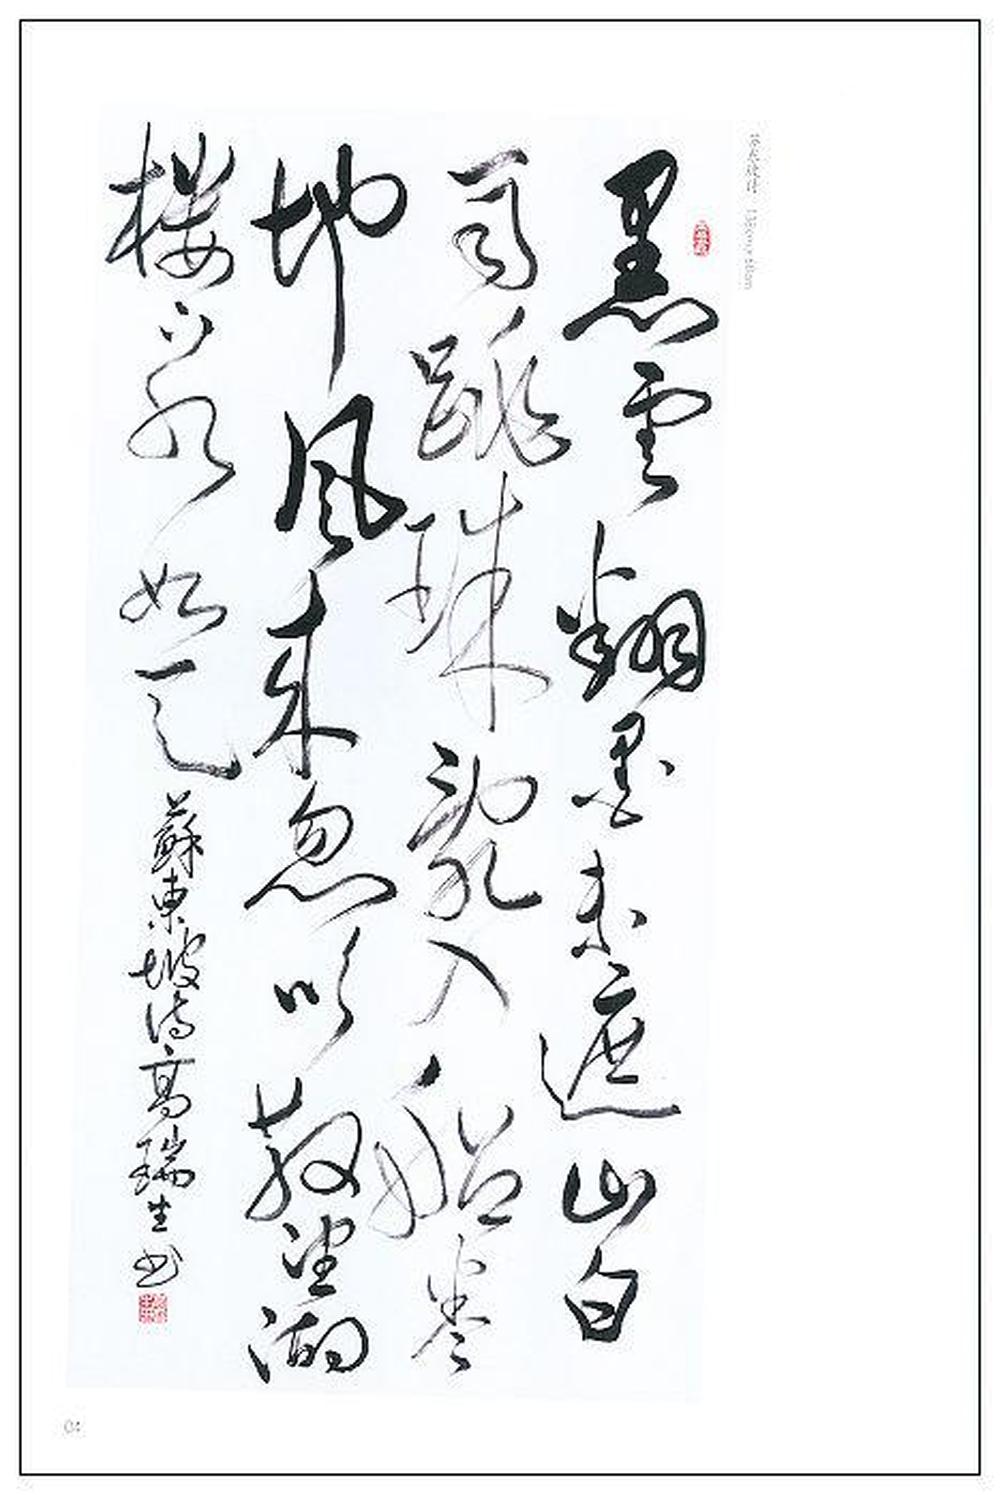 黑雲翻墨未遮山白
雨跳珠亂入船卷
地風来忽吹散望湖
樓下水如天
蘇東坡詩高瑞生书
04